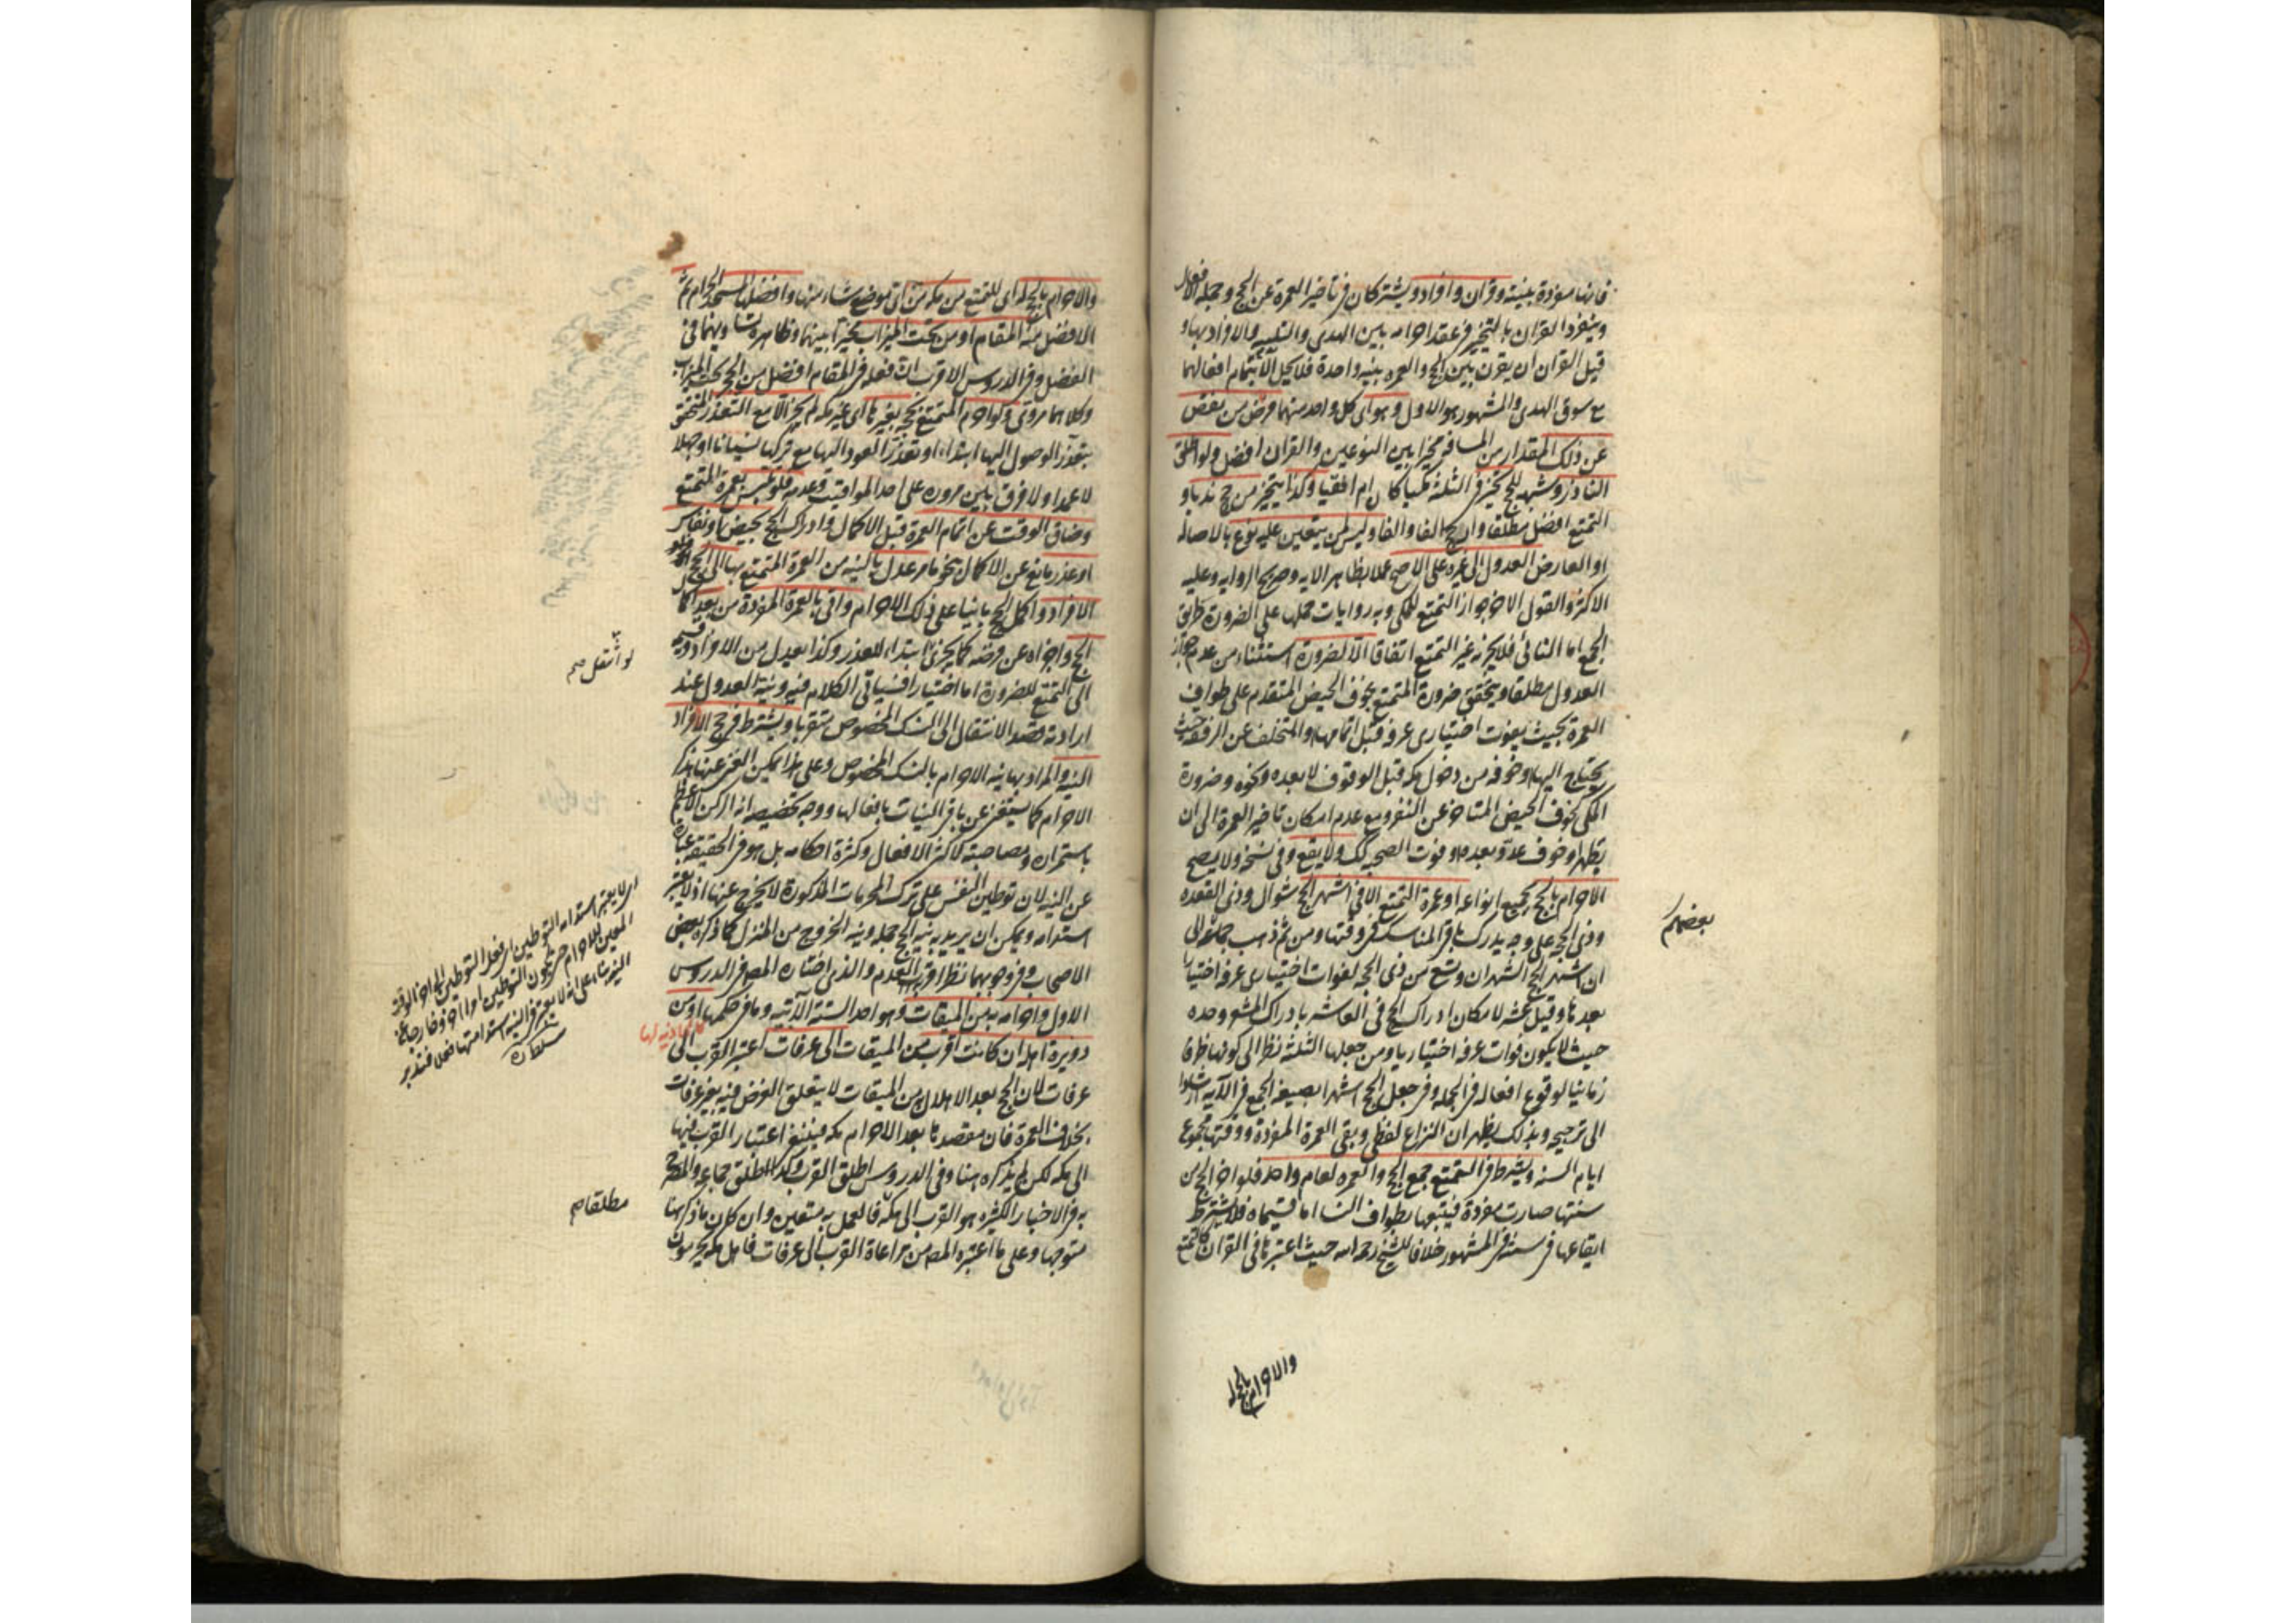 فانها مفردة بنيته وقران وافراد ويشتركان في تاخير العمرة عن الحج وجملة الافعال
وينفرد القران بالتخيير في عقد احرامه بين الهدى والتلبية والافراد بها و
قيل القران ان يقرن بين الحج والعمره بنية واحدة فلا يحل الا بتمام افعالهما
مع سوق الهدى والمشهور هو الاول وهو اى كل واحد منهما فرض من نقص
عن ذلك المقدار من المسافة مخيرا بين النوعين والقران افضل ولو اطلق
الناذر وشبهه للحج تخير فى الثلثة مكيا كان ام افقيا وكذا يتخير من حج ندبا و
التمتع افضل مطلقا وان حج الفا والفا وليس لمن يتعين عليه نوع بالاصالة
او العارض العدول الى غيره على الاصح عملا بظاهر الايه وصريح الروايه وعليه
الاكثر والقول الاخر جواز التمتع للمكى وبه روايات حملها على الضرورة طريق
الجمع اما النائى فلا يجزئه غير التمتع اتفاقا الا لضرورة استثناء من عدم جواز
العدول مطلقا ويتحقق ضرورة المتمتع بخوف الحيض المتقدم على طواف
العمرة بحيث يفوت اختيارى عرفه قبل اتمامها والتخلف عن الرفقه حيث
يحتاج اليها وخوفه من دخول مكه قبل الوقوف لا بعده ونحوه وضرورة
المكى بخوف الحيض المتاخر عن النفر مع عدم امكان تاخير العمرة الى ان
يطهر او خوف عدو بعده او فوت الصحبه كك ولا يقع وفى نسخه ولا يصح
الاحرام بالحج بجميع انواعه او عمرة التمتع الا فى اشهر الحج شوال وذى القعده
وذى الحجه على وجه يدرك باقى المناسك فى وقتها ومن ثم ذهب جماعة الى
ان اشهر الحج الشهران وتسع من ذى الحجه لفوات اختيارى عرفه اختيارا
بعدها وقيل عشر لامكان ادراك الحج فى العاشر بادراك المشعر وحده
حيث لا يكون فوات عرفه اختياريا ومن جعلها الثلثة نظر الى كونها ظرفا
زمانيا لوقوع افعاله فى الجمله وفى جعل الحج اشهرا بصيغة الجمع فى الآيه ارشادا
الى ترجيحه وبذلك يظهر ان النزاع لفظى وبقى العمرة المفردة ووقتها مجموع
ايام السنه ويشترط فى التمتع جمع الحج والعمره لعام واحد فلو اخر الحج عن
سنتها صارت مفردة فيتبعها بطواف النسا اما قسيماه فلا يشترط
ايقاعهما فى سنة فى المشهور خلافا للشيخ رحمه الله حيث اعتبرها فى القران كالتمتع
بعضهم
والاحرام بالحج له
والاحرام بالحج له اى للتمتع من مكه من اى موضع شاء منها وافضلها المسجد الحرام ثم
الافضل منه المقام او من تحت الميزاب مخيرا بينهما وظاهره تساويهما فى
الفضل وفى الدروس الاقرب ان فعله فى المقام افضل من الحجر تحت الميزاب
وكلاهما مروى ولو احرم المتمتع بحجه بغيرها اى غير مكه لم يجز الا مع التعذر المتحقق
بتعذر الوصول اليها ابتداء او تعذر العود اليها مع تركها نسيانا او جهلا
لا عمدا ولا فرق بين مروره على احد المواقيت وعدمه ولو تلبس بعمرة التمتع
وضاق الوقت عن اتمام العمرة قبل الاكمال وادراك الحج بحيض او نفاس
او عذر مانع عن الاكمال بنحو ما مر عدل بالنيه من العمرة المتمتع بها الى الحج
الافراد واكمل الحج بانيا على ذلك الاحرام واتى بالعمرة المفردة من بعد اكمال
الحج واجزاه عن فرضه كما يجزئ ابتداء للعذر وكذا يعدل من الافراد وقسيمه
الى التمتع للضرورة اما اختيارا فسياتى الكلام فيه ونية العدول عند
ارادته قصد الانتقال الى النسك المخصوص متقربا ويشترط فى حج الافراد
النيه والمراد بها نية الاحرام بالنسك المخصوص وعلى هذا يمكن الغنى عنها بذكر
الاحرام كما يستغنى عن باقى النيات بافعالها ووجه تخصيصه انه الركن الاعظم
باستمراره ومصاحبته لاكثر الافعال وكثرة احكامه بل هو فى الحقيقه عبارة
عن النيه لان توطين النفس على ترك المحرمات المذكورة لا يخرج عنها اذ لا يعتبر
استدامته ويمكن ان يريد به نية الحج جملة ونية الخروج من المنزل كما ذكره بعض
الاصحاب وفى وجوبها نظر اقربه العدم والذى اختاره المص فى الدروس
الاول واحرامه به من الميقات وهو احد الستة الآتيه وما فى حكمها او من
دويرة اهله ان كانت اقرب من الميقات الى عرفات اعتبر القرب الى
عرفات لان الحج بعد الاهلال من الميقات لا يتعلق الغرض فيه بغير عرفات
بخلاف العمرة فان مقصدها بعد الاحرام مكه فينبغى اعتبار القرب فيها
الى مكه لكن لم يذكره هنا وفى الدروس اطلق القرب وكذا اطلق جماعه والمصرح
به فى الاخبار الكثيره هو القرب الى مكه فالعمل به متعين وان كان ما ذكرهنا
متوجها وعلى ما اعتبره المص من مراعاة القرب الى عرفات فاهل مكه يحرمون
لو انتقل صح
اى لا يعتبر استدامة التوطين اى فعل التوطين الى اخر الوقت
سلطان ره
مطلقا م